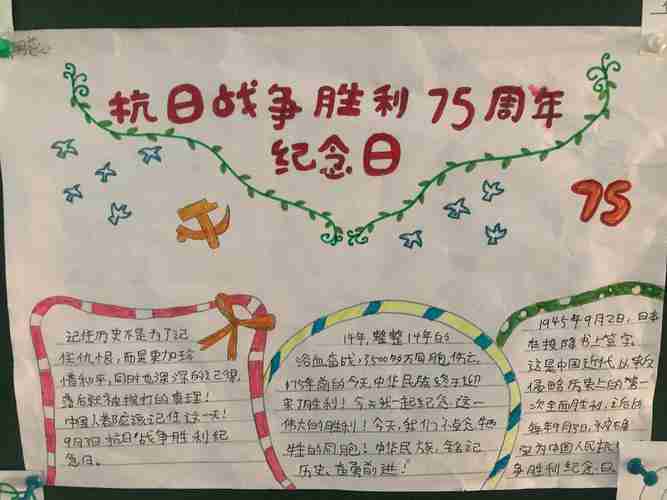 抗日战争胜利75周年
纪念日
75
记住历史不是为了记
住仇恨,而是更加珍
惜和平,同时也深深的记得,
落后就会被挨打的真理!
中国人都应该记住这一天!
9月3日抗日战争胜利纪
念日。
14年,整整14年的
浴血奋战,3500多万同胞伤亡
75年前的今天,中华民族终于迎
来了胜利!今天我一起纪念这一
伟大的胜利!今天,我们不忘念牺
牲的同胞!中华民族,铭记
历史,奋勇前进!
1945年9月2日,日本
在投降书上签字
这是中国近代以来反
侵略历史上的第一
次全面胜利,之后
每年9月3日,被
定为中国人民抗
争胜利纪念日